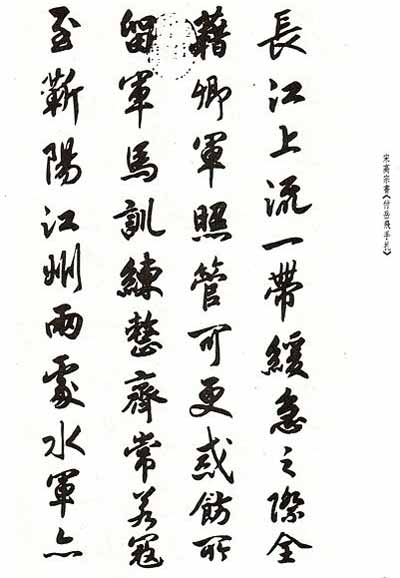 宋高宗書《付岳飛手札》
長江上流一帶緩急之際全
藉卿軍照管可更戒飭所
留軍馬訓練整齊常若寇
至蘄陽江州兩處水軍亦